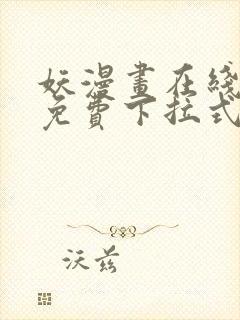 妖漫畫在綫
免費下拉式
沃茲